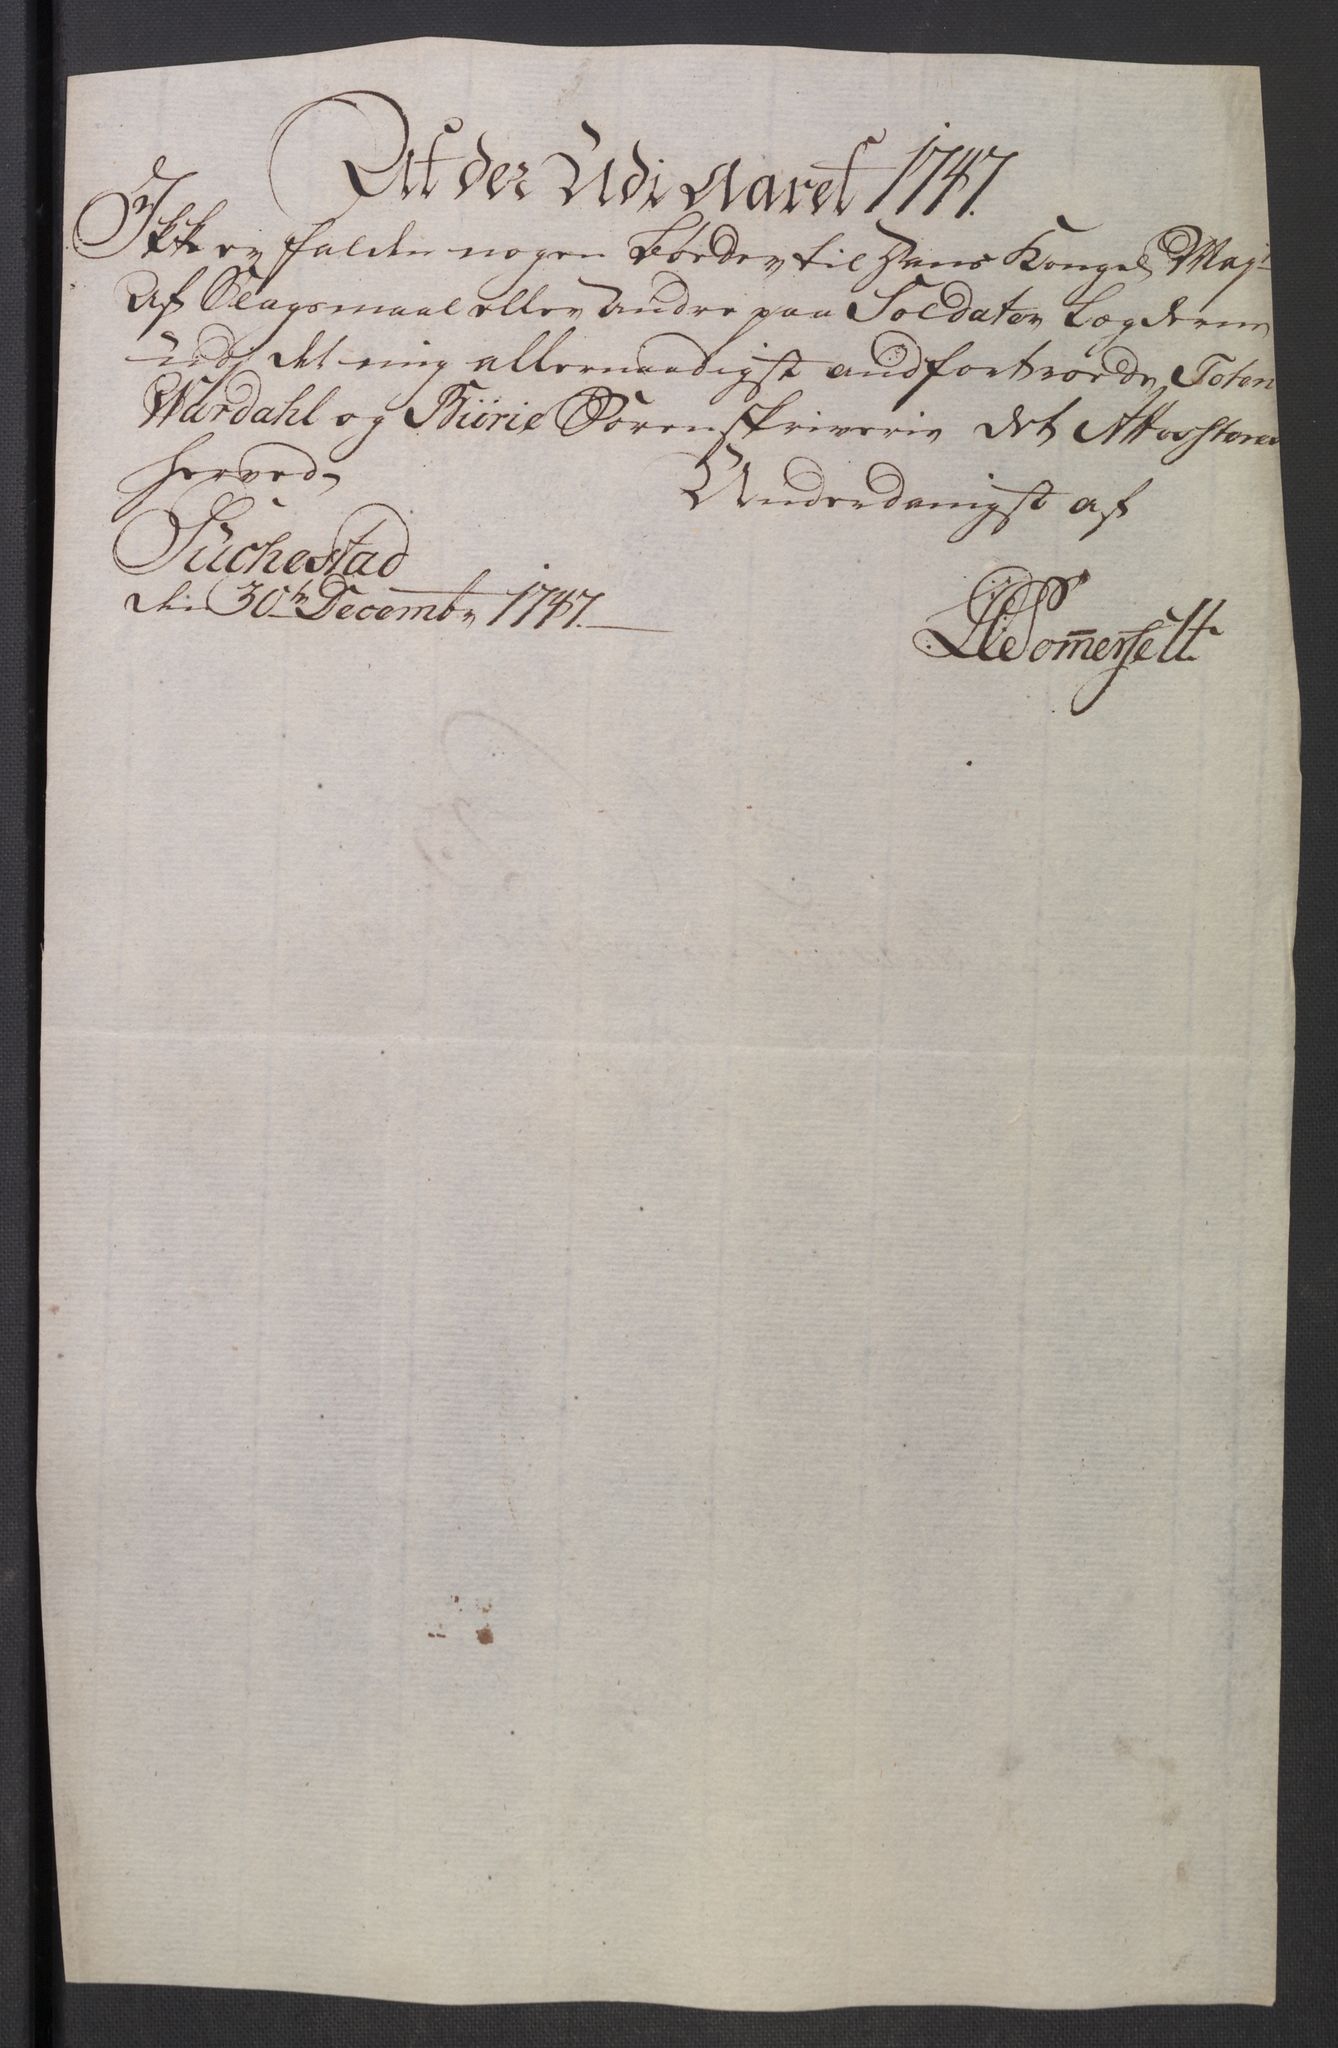 At der Udi Aaret 1747.
Ikke er falden nogen bøder til Hans Kongel Mayt
Af Slagsmaal eller andre paa Soldater Lægderne
udj det mig allernaadigst andfortroede Toten
Wardahl og Biirie Sorenskriverie det Attesteres
herved,
Underdanigst af
Suchestad
den 30th Decembr 1747.
Somerfeldt